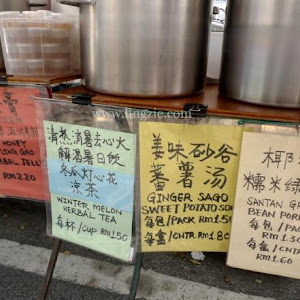 www.lingzie.com
膏
HONEY
HERBAL JELL
RM2.20
清热消暑去心火
解渴暑日饮
冬瓜灯心花
凉茶
WINTER MELON
HERBAL TEA
每杯/CUP RM1.50
姜味砂谷
蕃薯汤
GINGER SAGO
SWEET POTATO SOUP
每包/PACK RM1.50
每盒/CNTR RM1.80
椰
糯米绿
SANTAN GR
BEAN PORR
每包/PAC
RM1.30
每盒/CNTR
RM1.60